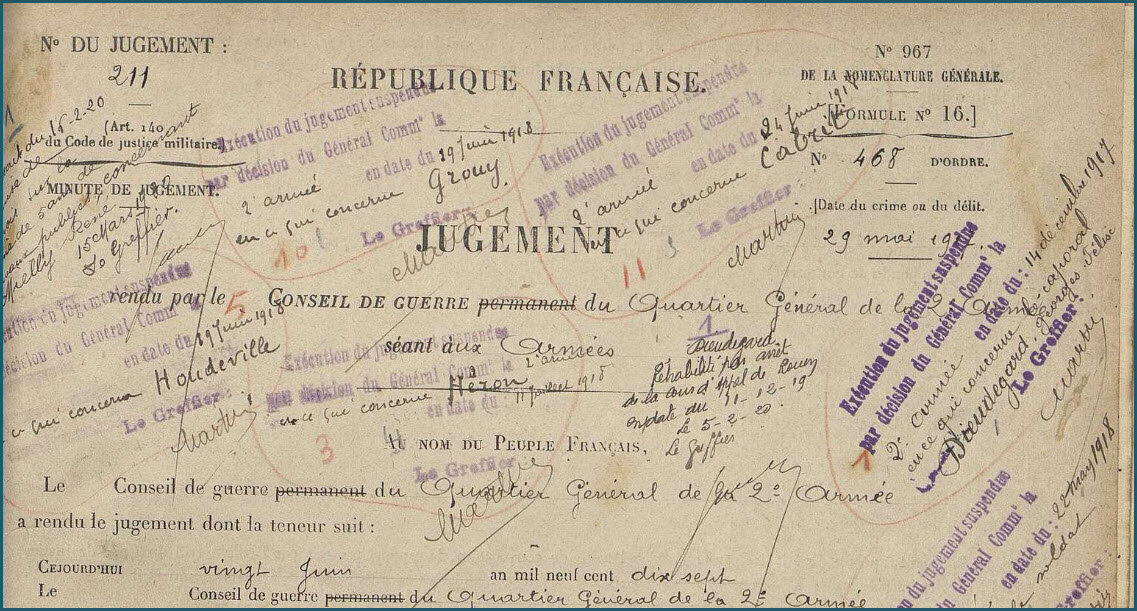 N° DU JUGEMENT :
211
(Art. 140
du Code de justice militaire)
MINUTE DE JUGEMENT.
RÉPUBLIQUE FRANÇAISE.
N° 967
DE LA NOMENCLATURE GÉNÉRALE.
[FORMULE N° 16.]
N° 468 D'ORDRE.
Date du crime ou du délit.
29 mai
15 Mars
Le Greffier.
Exécution du jugement suspendue
par décision du Général Commt la
2e armée en date du 29 juin 1918
en ce qui concerne Grouy.
Le Greffier :
Martin
10
Exécution du jugement suspendue
par décision du Général Commt la
2e armée en date du 24 juin 1918
en ce qui concerne Cabril
Le Greffier :
Martin
11
JUGEMENT
rendu par le CONSEIL DE GUERRE permanent du Quartier Général de la 2e Armée
séant aux Armées
du jugement suspendue
décision du Général Commt la
en date du 29 juin 1918
ce qui concerne Houdeville
Le Greffier :
Martin
5
Exécution du jugement suspendue
par décision du Général Commt la
2e armée
en ce qui concerne Héron
en date du 11 juillet 1918
Le Greffier
Martin
3
1
Dieudegard
Réhabilité par arrêt
de la cour d'appel de Rouen
en date du 11-12-19
Le 5-2-20
Le Greffier
Exécution du jugement suspendue
par décision du Général Commt la
2e armée en date du : 14 décembre 1917
en ce qui concerne le caporal
Dieudegard Georges
Le Greffier :
Martin
1
AU NOM DU PEUPLE FRANÇAIS,
Le Conseil de guerre permanent du Quartier Général de la 2e Armée
a rendu le jugement dont la teneur suit :
CEJOURD'HUI vingt Juin an mil neuf cent dix sept
Le Conseil de guerre permanent du Quartier Général de la 2e Armée
du jugement suspendue
du Général Commt la
en date du : 22 may 1918
soldat
Greffier :